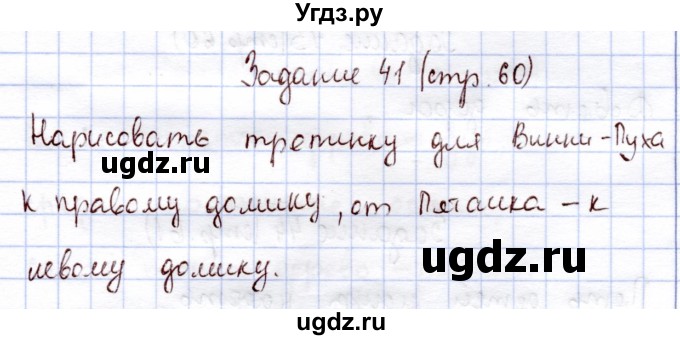 Угдз.ру
Задание 41 (стр. 60)
Нарисовать тропинку для Винни-Пуха
ugdz.ru
ugdz.ru
к правому домику, от Пятачка - к
ugdz.ru
левому домику.
ugdz.ru